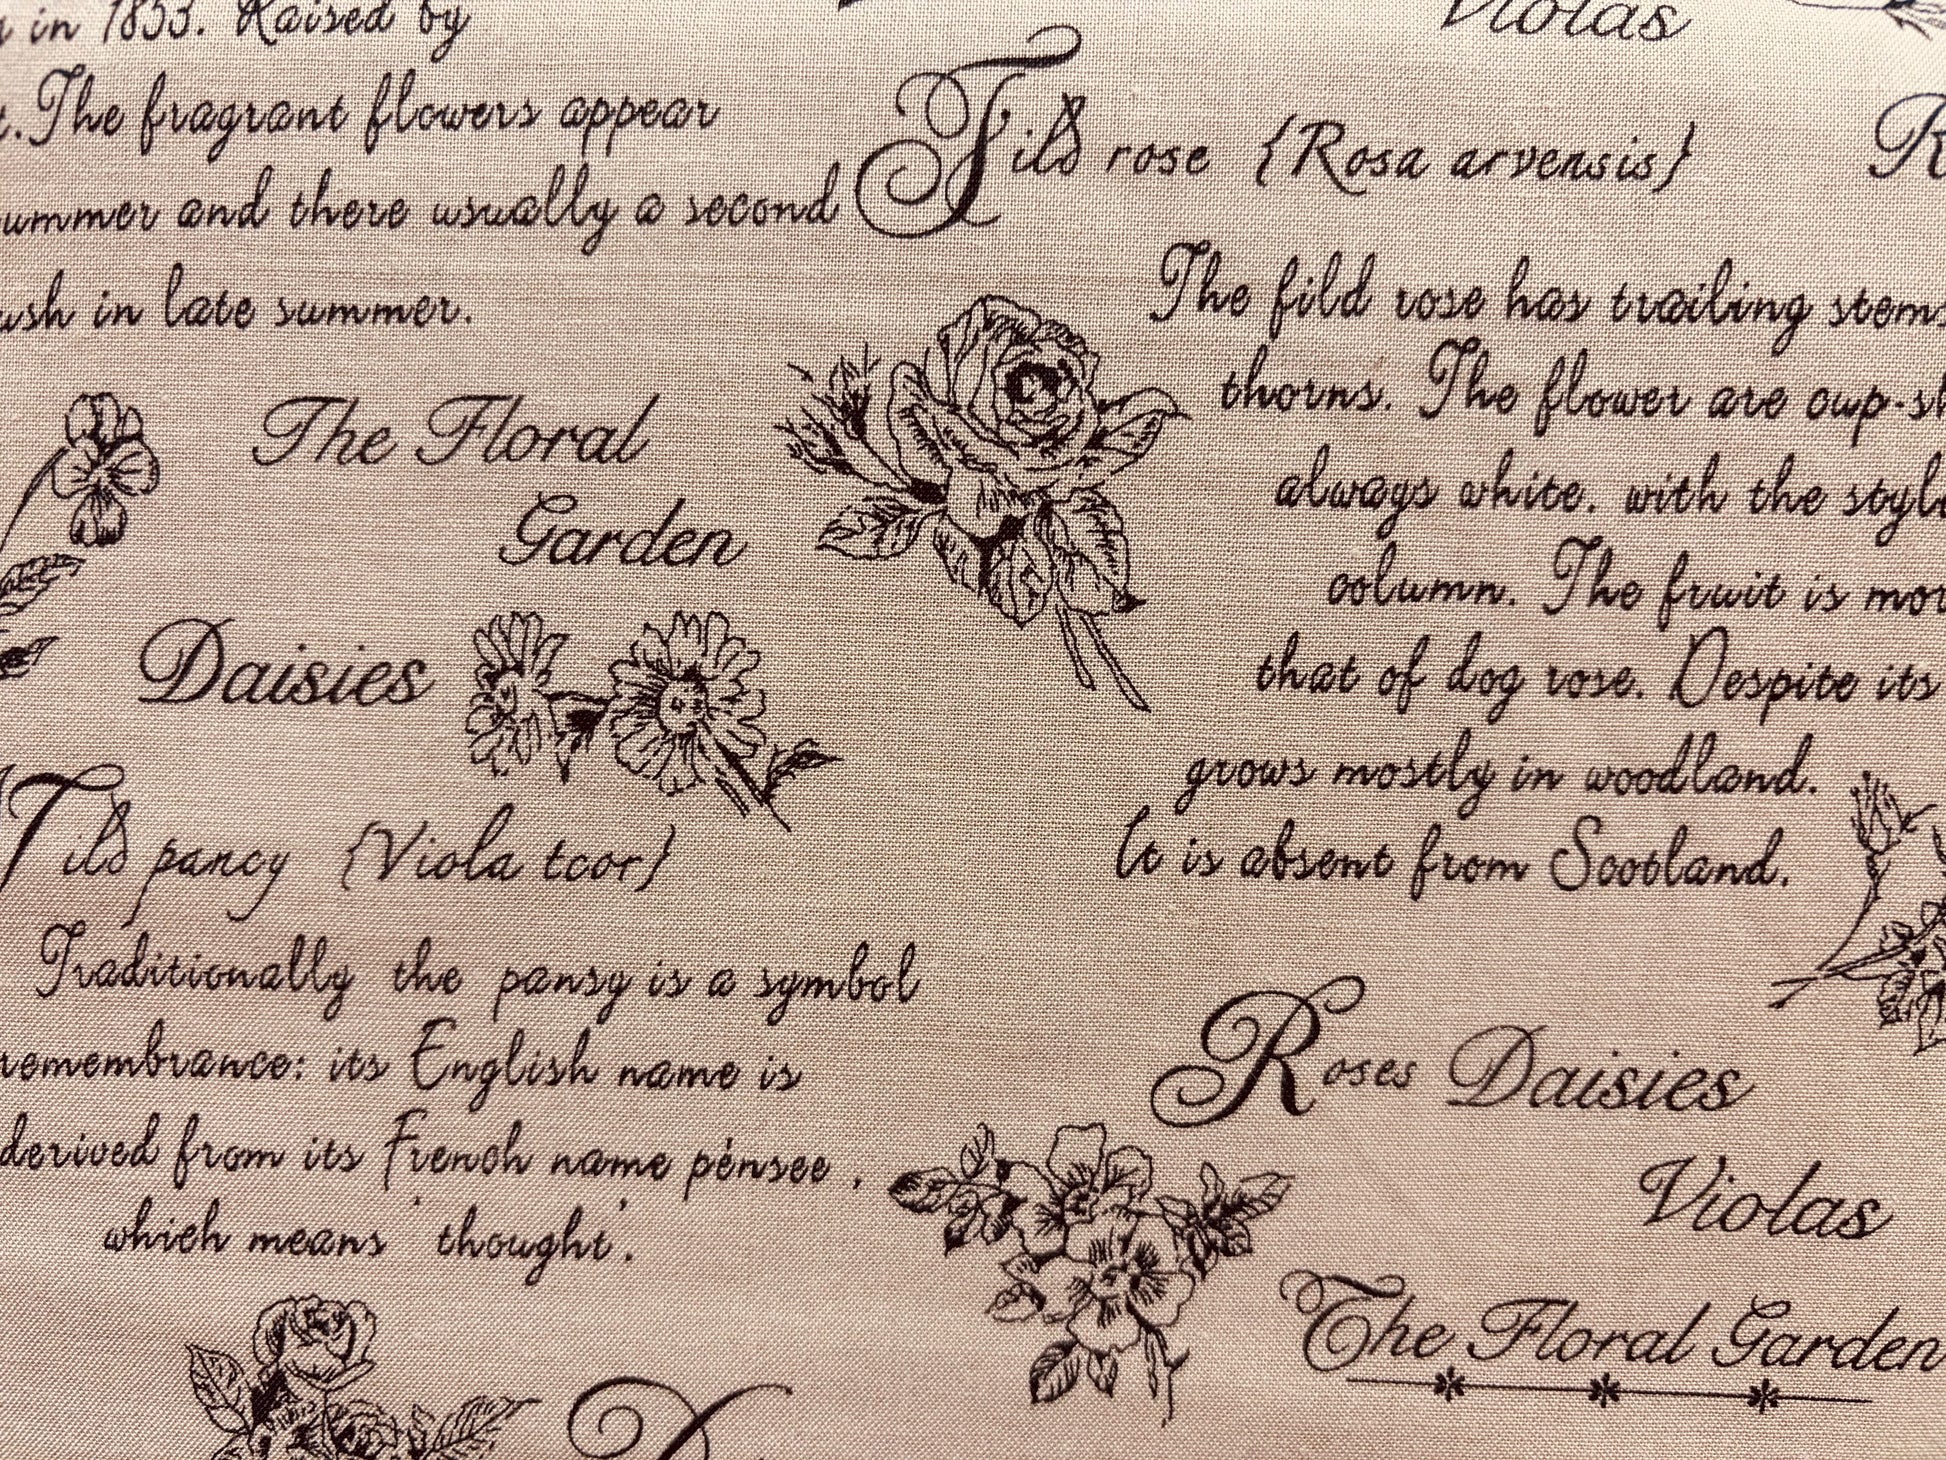 in 1853. Raised by
The fragrant flowers appear
summer and there usually a second
in late summer.
The Floral
Garden
Daisies
Fild pancy {Viola tcor}
Traditionally the pansy is a symbol
remembrance: its English name is
derived from its French name pénsee ,
which means 'thought'.
Violas
Fild rose {Rosa arvensis}
The fild rose has trailing stems
thorns. The flower are cup-sh
always white. with the style
column. The fruit is mor
that of dog rose. Despite its
grows mostly in woodland.
It is absent from Scotland.
Roses Daisies
Violas
The Floral Garden